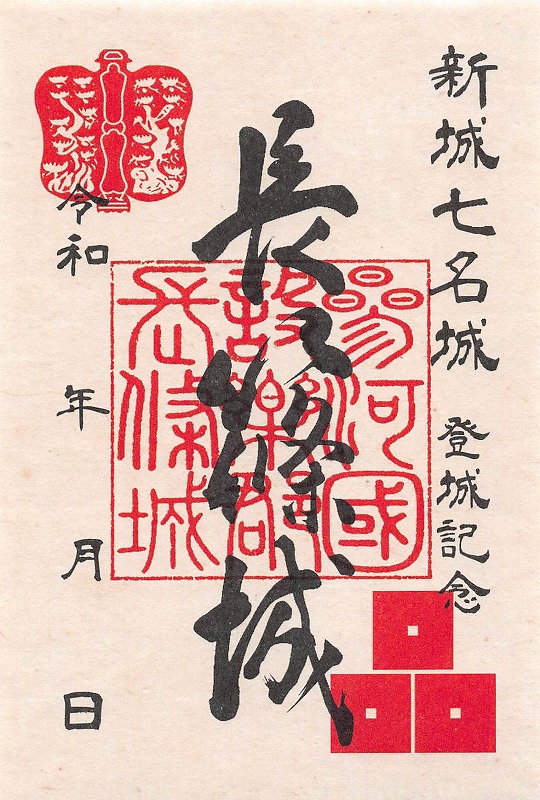 新城七名城 登城記念
長篠城
參河國
設樂郡
長條城
令和 年 月 日